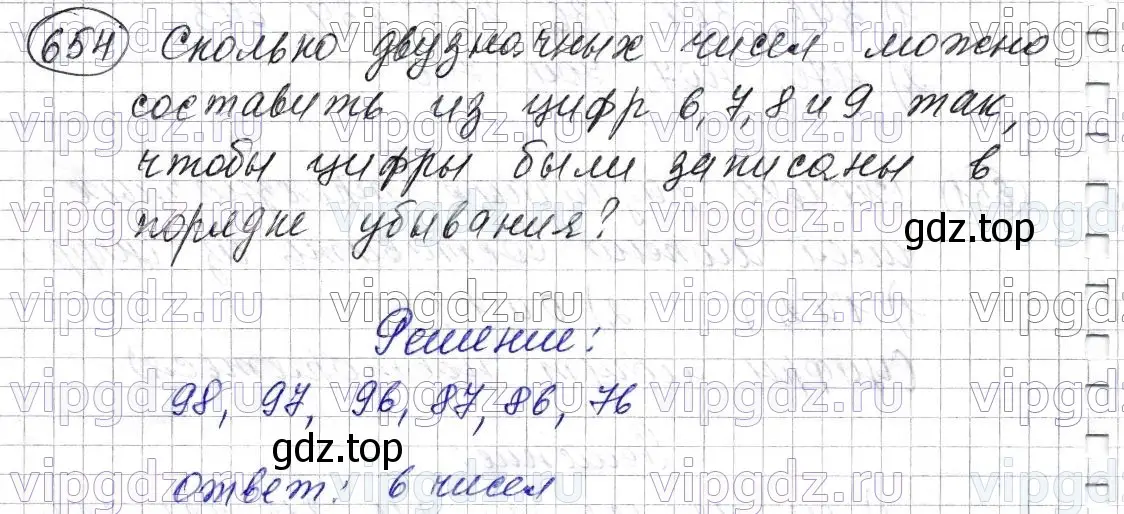 654 Сколько двузначных чисел можно
составить из цифр 6, 7, 8 и 9 так,
чтобы цифры были записаны в
порядке убывания?
gdz.top
Решение:
98, 97, 96, 87, 86, 76
gdz.top
Ответ: 6 чисел